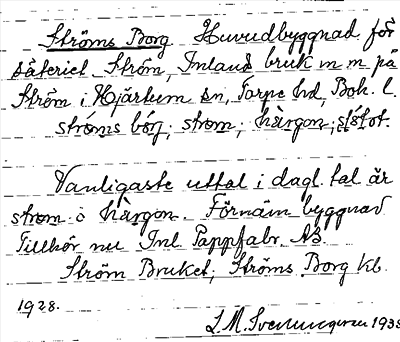 Ströms Borg Huvudbyggnad för
säteriet Ström, Inlands bruk m m på
Ström i Hjärtum sn, Torpe hd, Boh. l.
ströms bórj; strøm; hàrgon; slótət.
Vanligaste uttal i dagl. tal är
strøm o hàrgon. Förnäm byggnad
Tillhör nu Inl. Pappfabr. AB.
Ström Bruket; Ströms Borg kb.
1928.
L. M. 1938